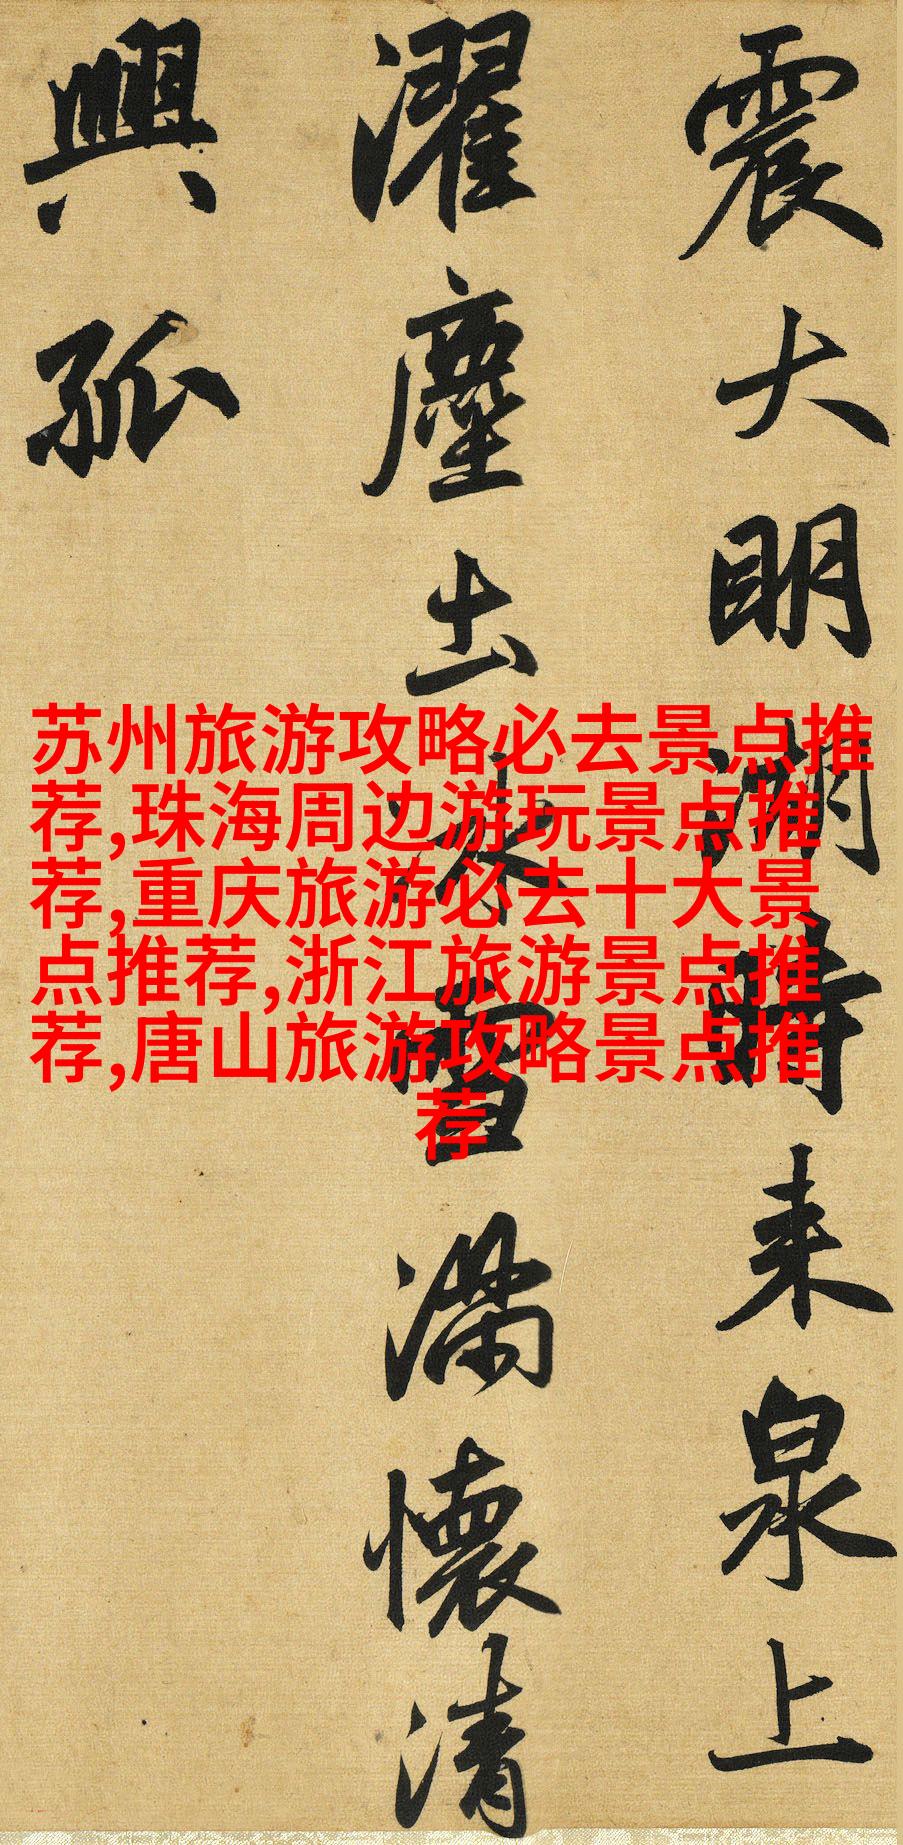 震大明湖時来泉上
濯塵土冰雪滿懷清
興孤
苏州旅游攻略必去景点推
荐,珠海周边游玩景点推
荐,重庆旅游必去十大景
点推荐,浙江旅游景点推
荐,唐山旅游攻略景点推
荐